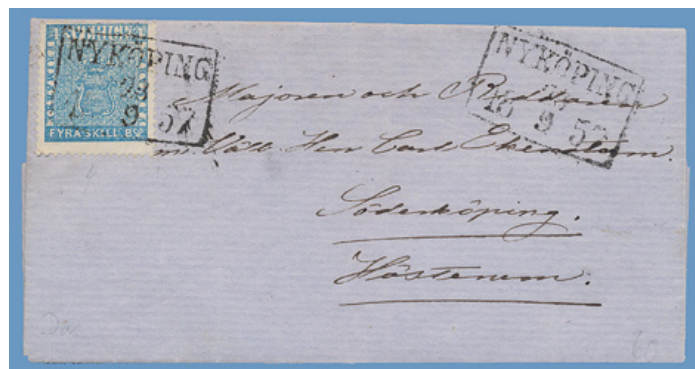 SVERIGE
FYRA SKILL. BCO
NYKÖPING
23
9 57
NYKÖPING
9 57
Majoren och Riddaren
m. Välb. Herr Carl Ekenstam.
Söderköping.
Hösterum.